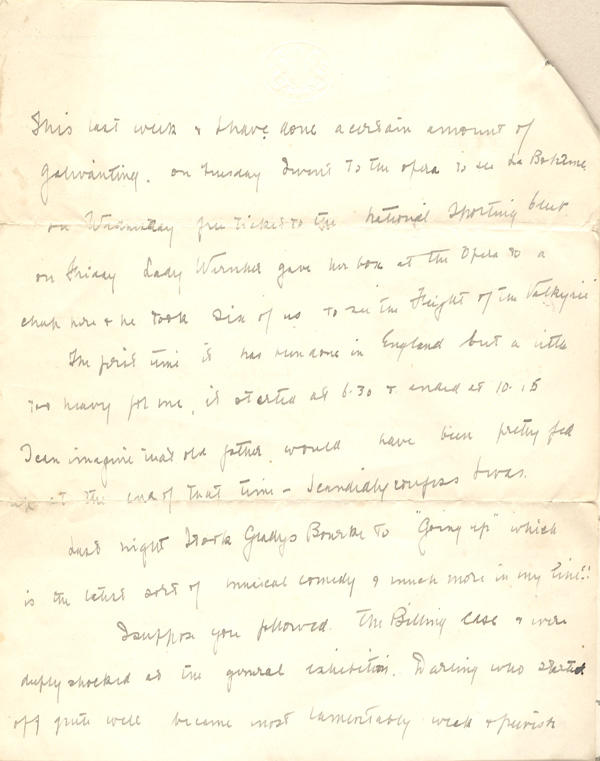 This last week & I have done a certain amount of
galivanting. on Tuesday I went to the opera to see La Bohème
on Wednesday free tickets to the national sporting club
on Friday Lady Wernher gave her box at the Opera to a
chap here & he took six of us to see the Flight of the Valkyrie
The first time it has been done in England but a little
too heavy for me, it started at 6.30 & ended at 10.15
I can imagine that old father would have been pretty fed
up at the end of that time – I candidly confess I was.
Last night I took Gladys Bourke to "Going up" which
is the latest sort of musical comedy & much more in my line!!
I suppose you followed the Billing case & were
deeply shocked at the general exhibition. Darling who started
off quite well became most lamentably weak & peevish